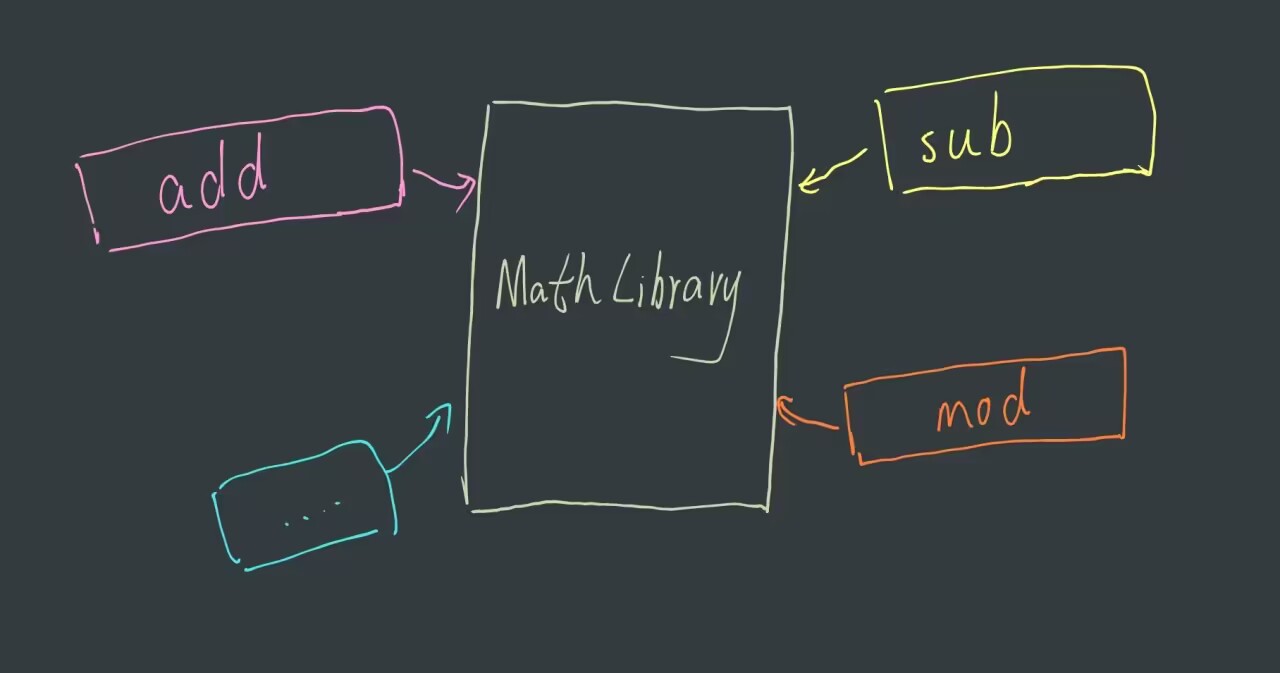 add
sub
Math Library
mod
....